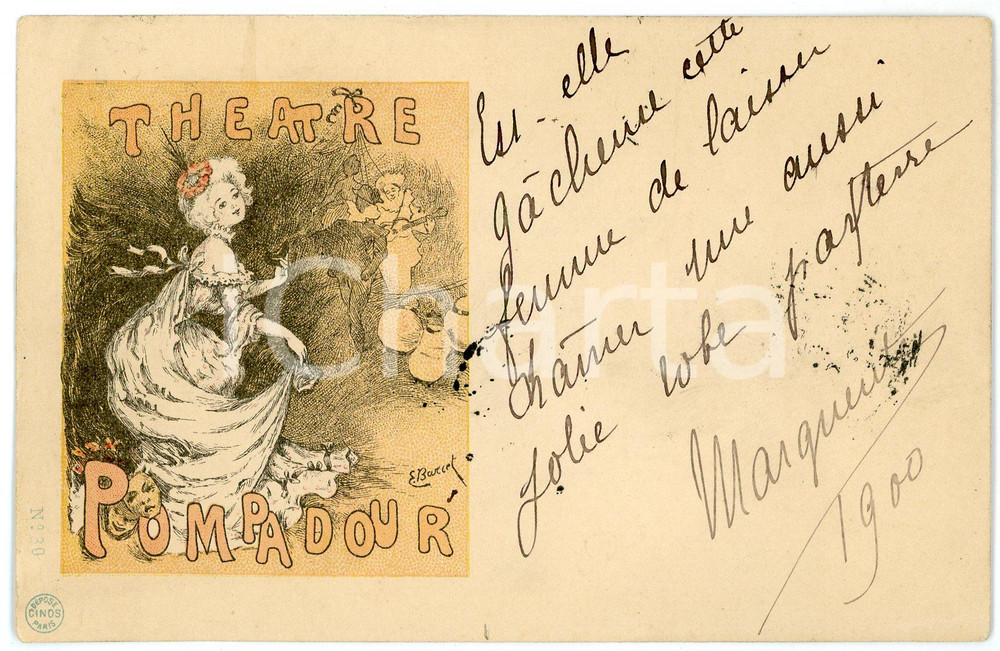 THEATRE
POMPADOUR
E. Barcet
No 20
DÉPOSÉ
CINOS
PARIS
Charta
Est-elle
gâcheuse cette
femme de laisser
traîner une aussi
jolie robe par terre
Marguerite
1900